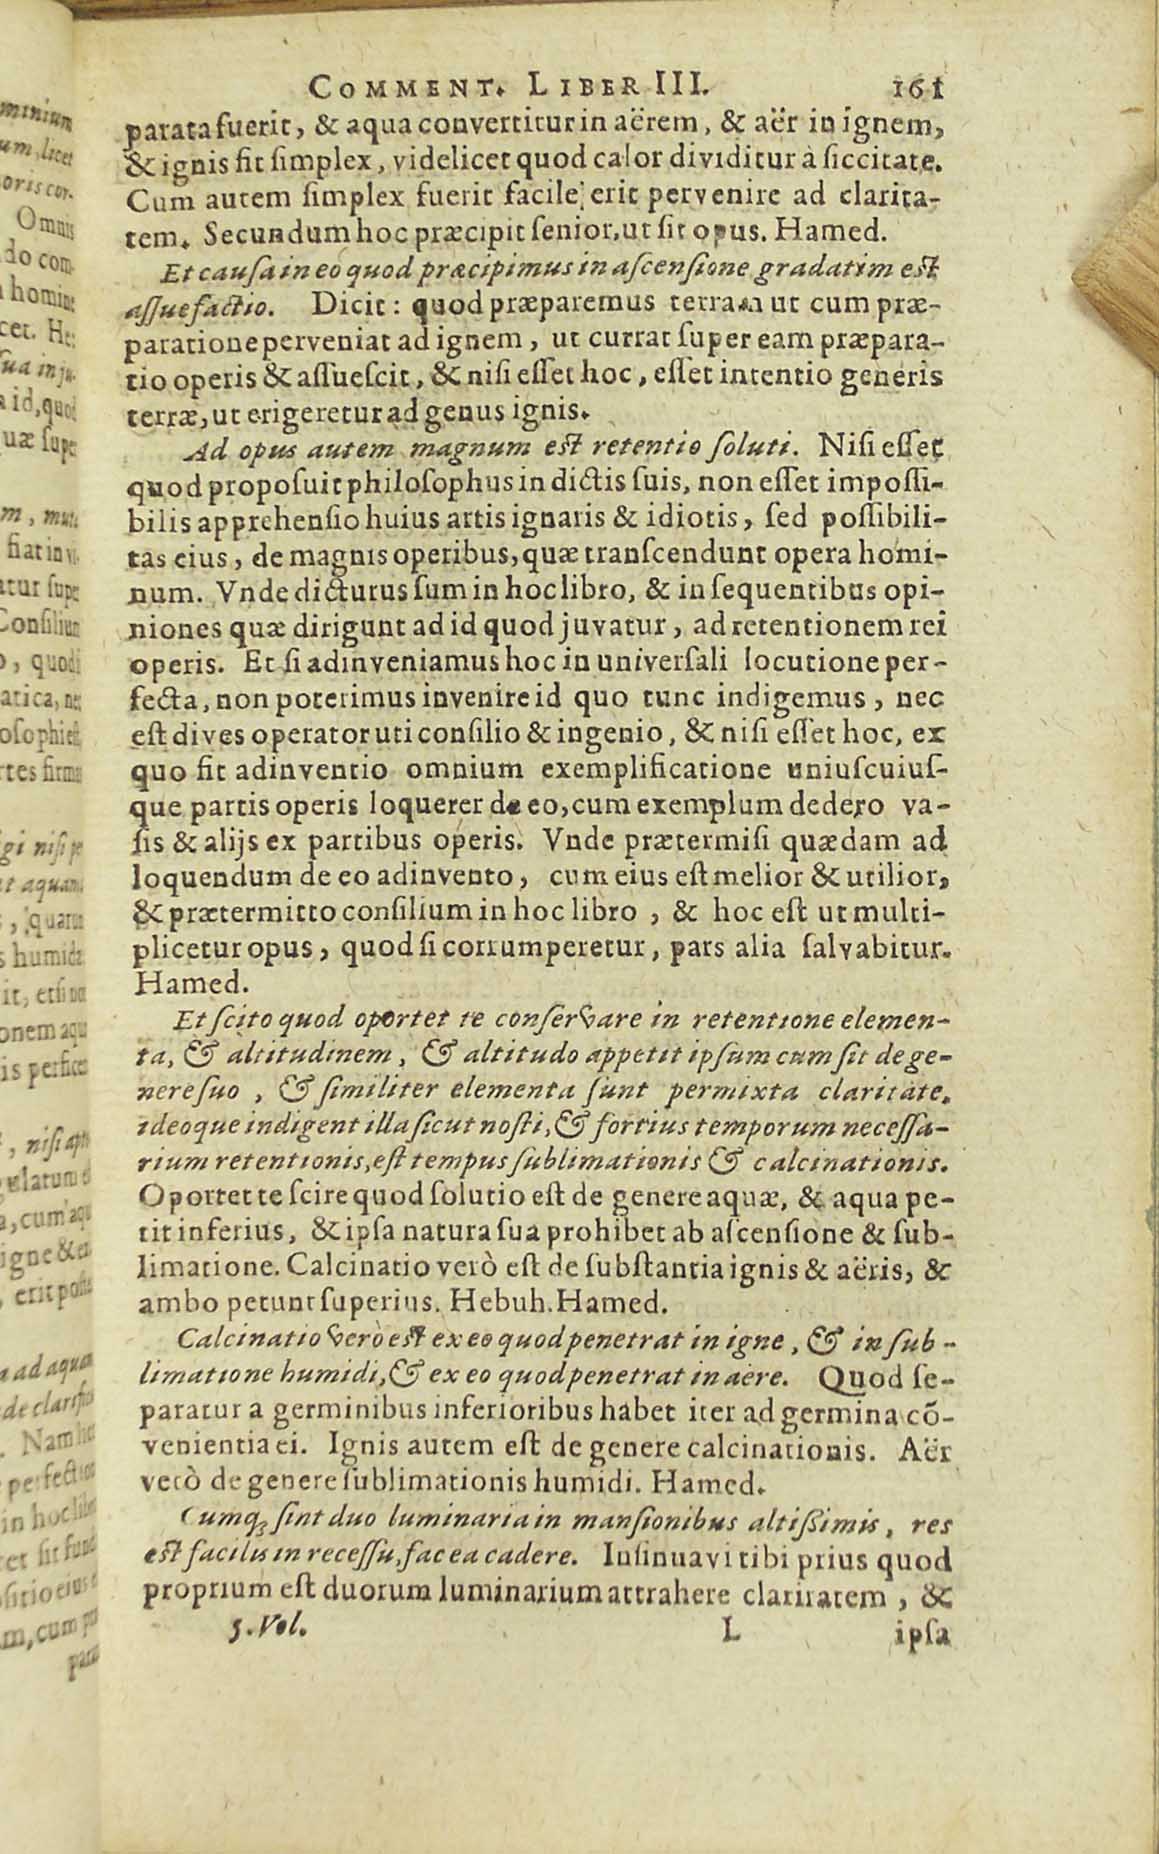 COMMENT. LIBER III. 161
parata fuerit, & aqua convertitur in aërem, & aër in ignem,
& ignis fit simplex, videlicet quod calor dividitur à siccitate.
Cum autem simplex fuerit facile erit pervenire ad clarita-
tem. Secundum hoc præcipit senior, ut sit opus. Hamed.
Et causa in eo quod præcipimus in ascensione gradatim est
assuefactio. Dicit: quod præparemus terram ut cum præ-
paratione perveniat ad ignem, ut currat super eam præpara-
tio operis & assuescit, & nisi esset hoc, esset intentio generis
terræ, ut erigeretur ad genus ignis.
Ad opus autem magnum est retentio soluti. Nisi esset
quod proposuit philosophus in dictis suis, non esset impossi-
bilis apprehensio huius artis ignaris & idiotis, sed possibili-
tas eius, de magnis operibus, quæ transcendunt opera homi-
num. Vnde dicturus sum in hoc libro, & in sequentibus opi-
niones quæ dirigunt ad id quod juvatur, ad retentionem rei
operis. Et si adinveniamus hoc in universali locutione per-
fecta, non poterimus invenire id quo tunc indigemus, nec
est dives operator uti consilio & ingenio, & nisi esset hoc, ex
quo fit adinventio omnium exemplificatione uniuscuius-
que partis operis loquerer de eo, cum exemplum dedero va-
sis & alijs ex partibus operis. Vnde prætermisi quædam ad
loquendum de eo adinvento, cum eius est melior & utilior,
& prætermitto consilium in hoc libro, & hoc est ut multi-
plicetur opus, quod si corrumperetur, pars alia salvabitur.
Hamed.
Et scito quod oportet te conservare in retentione elemen-
ta, & altitudinem, & altitudo appetit ipsum cum sit de ge-
nere suo, & similiter elementa sunt permixta claritate.
ideoque indigent illa sicut nosti, & fortius temporum necessa-
rium retentionis, est tempus sublimationis & calcinationis.
Oportet te scire quod solutio est de genere aquæ, & aqua pe-
tit inferius, & ipsa natura sua prohibet ab ascensione & sub-
limatione. Calcinatio verò est de substantia ignis & aëris, &
ambo petunt superius. Hebuh. Hamed.
Calcinatio verò est ex eo quod penetrat in igne, & in sub-
limatione humidi, & ex eo quod penetrat in aëre. Quod se-
paratur a germinibus inferioribus habet iter ad germina cõ-
venientia ei. Ignis autem est de genere calcinationis. Aër
verò de genere sublimationis humidi. Hamed.
Cumq; sint duo luminaria in mansionibus altißimis, res
est facilis in recessu, fac ea cadere. Insinuavi tibi prius quod
proprium est duorum luminarium attrahere claritatem, &
5. Vol. L ipsa